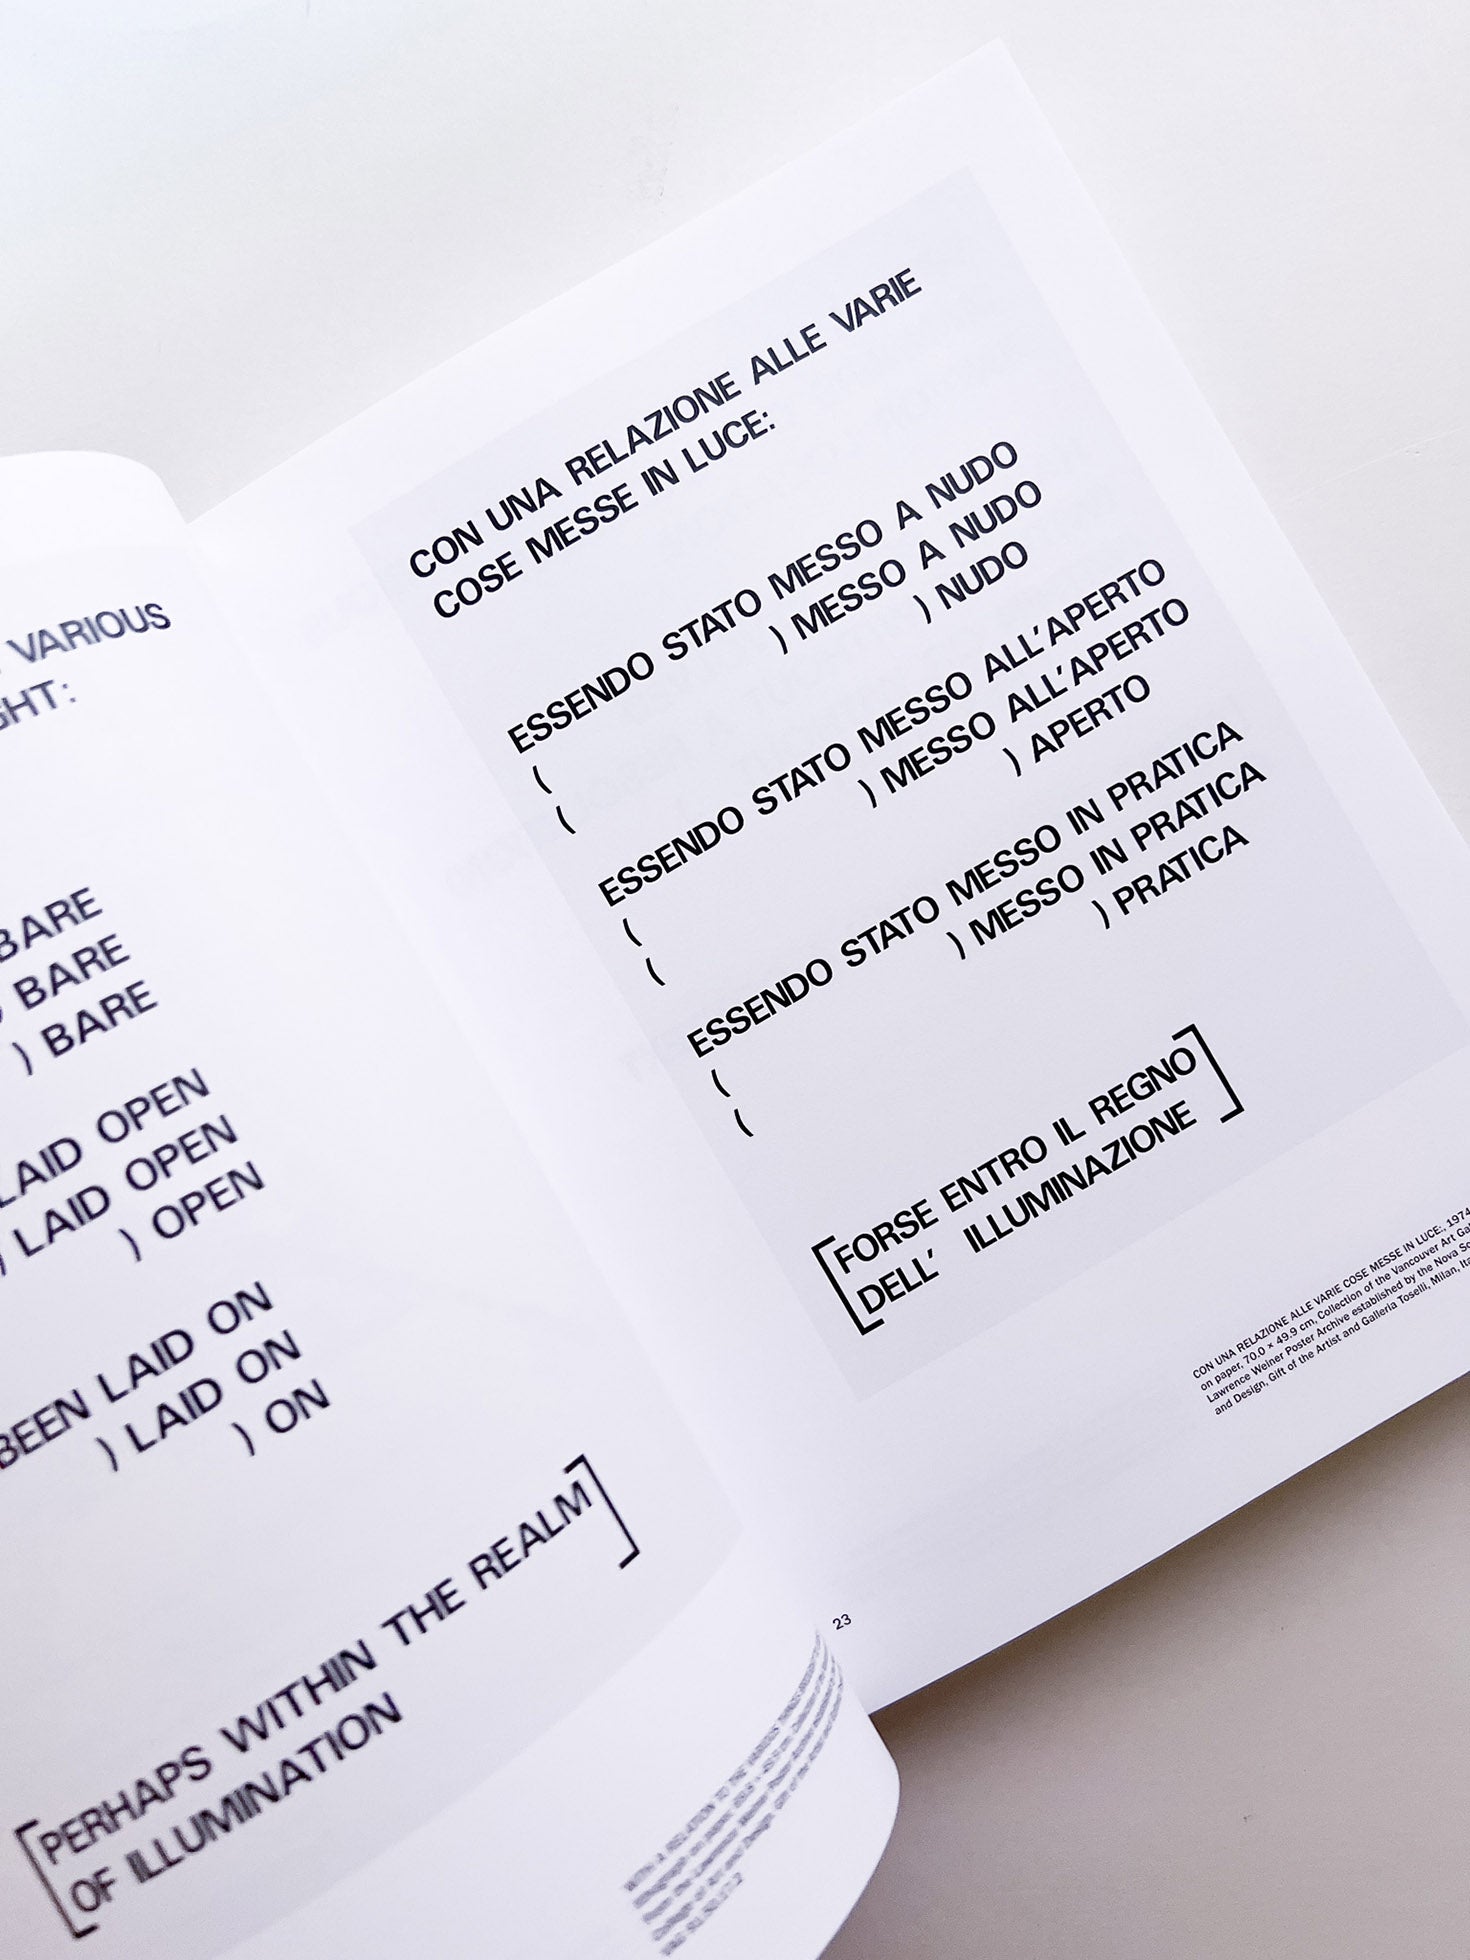 VARIOUS
GHT:
BARE
BARE
) BARE
LAID OPEN
) LAID OPEN
) OPEN
BEEN LAID ON
) LAID ON
) ON
[PERHAPS WITHIN THE REALM
OF ILLUMINATION]
CON UNA RELAZIONE ALLE VARIE
COSE MESSE IN LUCE:
ESSENDO STATO MESSO A NUDO
( ) MESSO A NUDO
( ) NUDO
ESSENDO STATO MESSO ALL'APERTO
( ) MESSO ALL'APERTO
( ) APERTO
ESSENDO STATO MESSO IN PRATICA
( ) MESSO IN PRATICA
( ) PRATICA
[FORSE ENTRO IL REGNO
DELL' ILLUMINAZIONE]
CON UNA RELAZIONE ALLE VARIE COSE MESSE IN LUCE:, 1974
on paper, 70.0 × 49.9 cm, Collection of the Vancouver Art Gal
Lawrence Weiner Poster Archive established by the Nova Sc
and Design, Gift of the Artist and Galleria Toselli, Milan, Ita
23